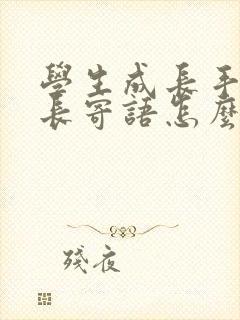 學生成長手
長寄語怎麼
殘夜